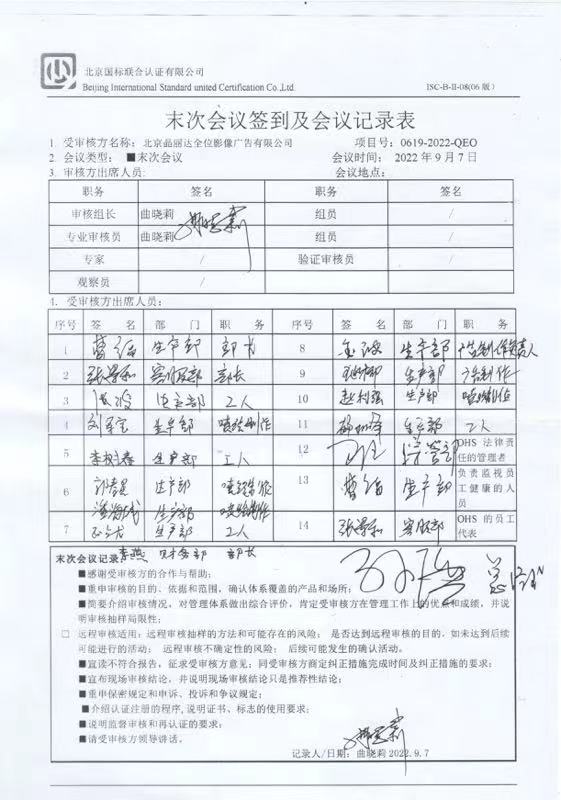 北京国标联合认证有限公司
Beijing International Standard united Certification Co.,Ltd. ISC-B-II-08(06版)
末次会议签到及会议记录表
1. 受审核方名称: 北京晶丽达全位影像广告有限公司 项目号: 0619-2022-QEO
2. 会议类型: ■末次会议 会议时间: 2022年9月7日
3. 审核方出席人员: 会议地点:
职务 签名 职务 签名
审核组长 曲晓莉 组员 /
专业审核员 曲晓莉 组员 /
专家 / 验证审核员 /
观察员 / /
4. 受审核方出席人员:
序号 签名 部门 职务 序号 签名 部门 职务
1 生产部 部长 8 生产部
2 张景和 客服部 部长 9 生产部 广告制作
3 生产部 工人 10 赵利强 生产部
4 刘 生产部 11 生产部 工人
5 李 生产部 工人 12 OHS 法律责任的管理者
6 生产部 13 生产部 负责监视员工健康的人员
生产部
7 生产部 工人 14 张景和 客服部 OHS 的员工代表
李燕 财务部 部长
末次会议记录
■感谢受审核方的合作与帮助;
■重申审核的目的、依据和范围,确认体系覆盖的产品和场所;
■简要介绍审核情况,对管理体系做出综合评价,肯定受审核方在管理工作上的优点和成绩,并说
明审核抽样局限性;
□ 远程审核适用: 远程审核抽样的方法和可能存在的风险; 是否达到远程审核的目的,如未达到后续
可能进行的活动; 远程审核不确定性的风险; 后续可能发生的确认活动。
■宣读不符合报告,征求受审核方意见;同受审核方商定纠正措施完成时间及纠正措施的要求;
■宣布现场审核结论,并说明现场审核结论只是推荐性结论;
■重申保密规定和申诉、投诉和争议规定;
■介绍认证注册的程序,说明证书、标志的使用要求;
■说明监督审核和再认证的要求;
■请受审核方领导讲话。
记录人/日期: 曲晓莉 2022.9.7